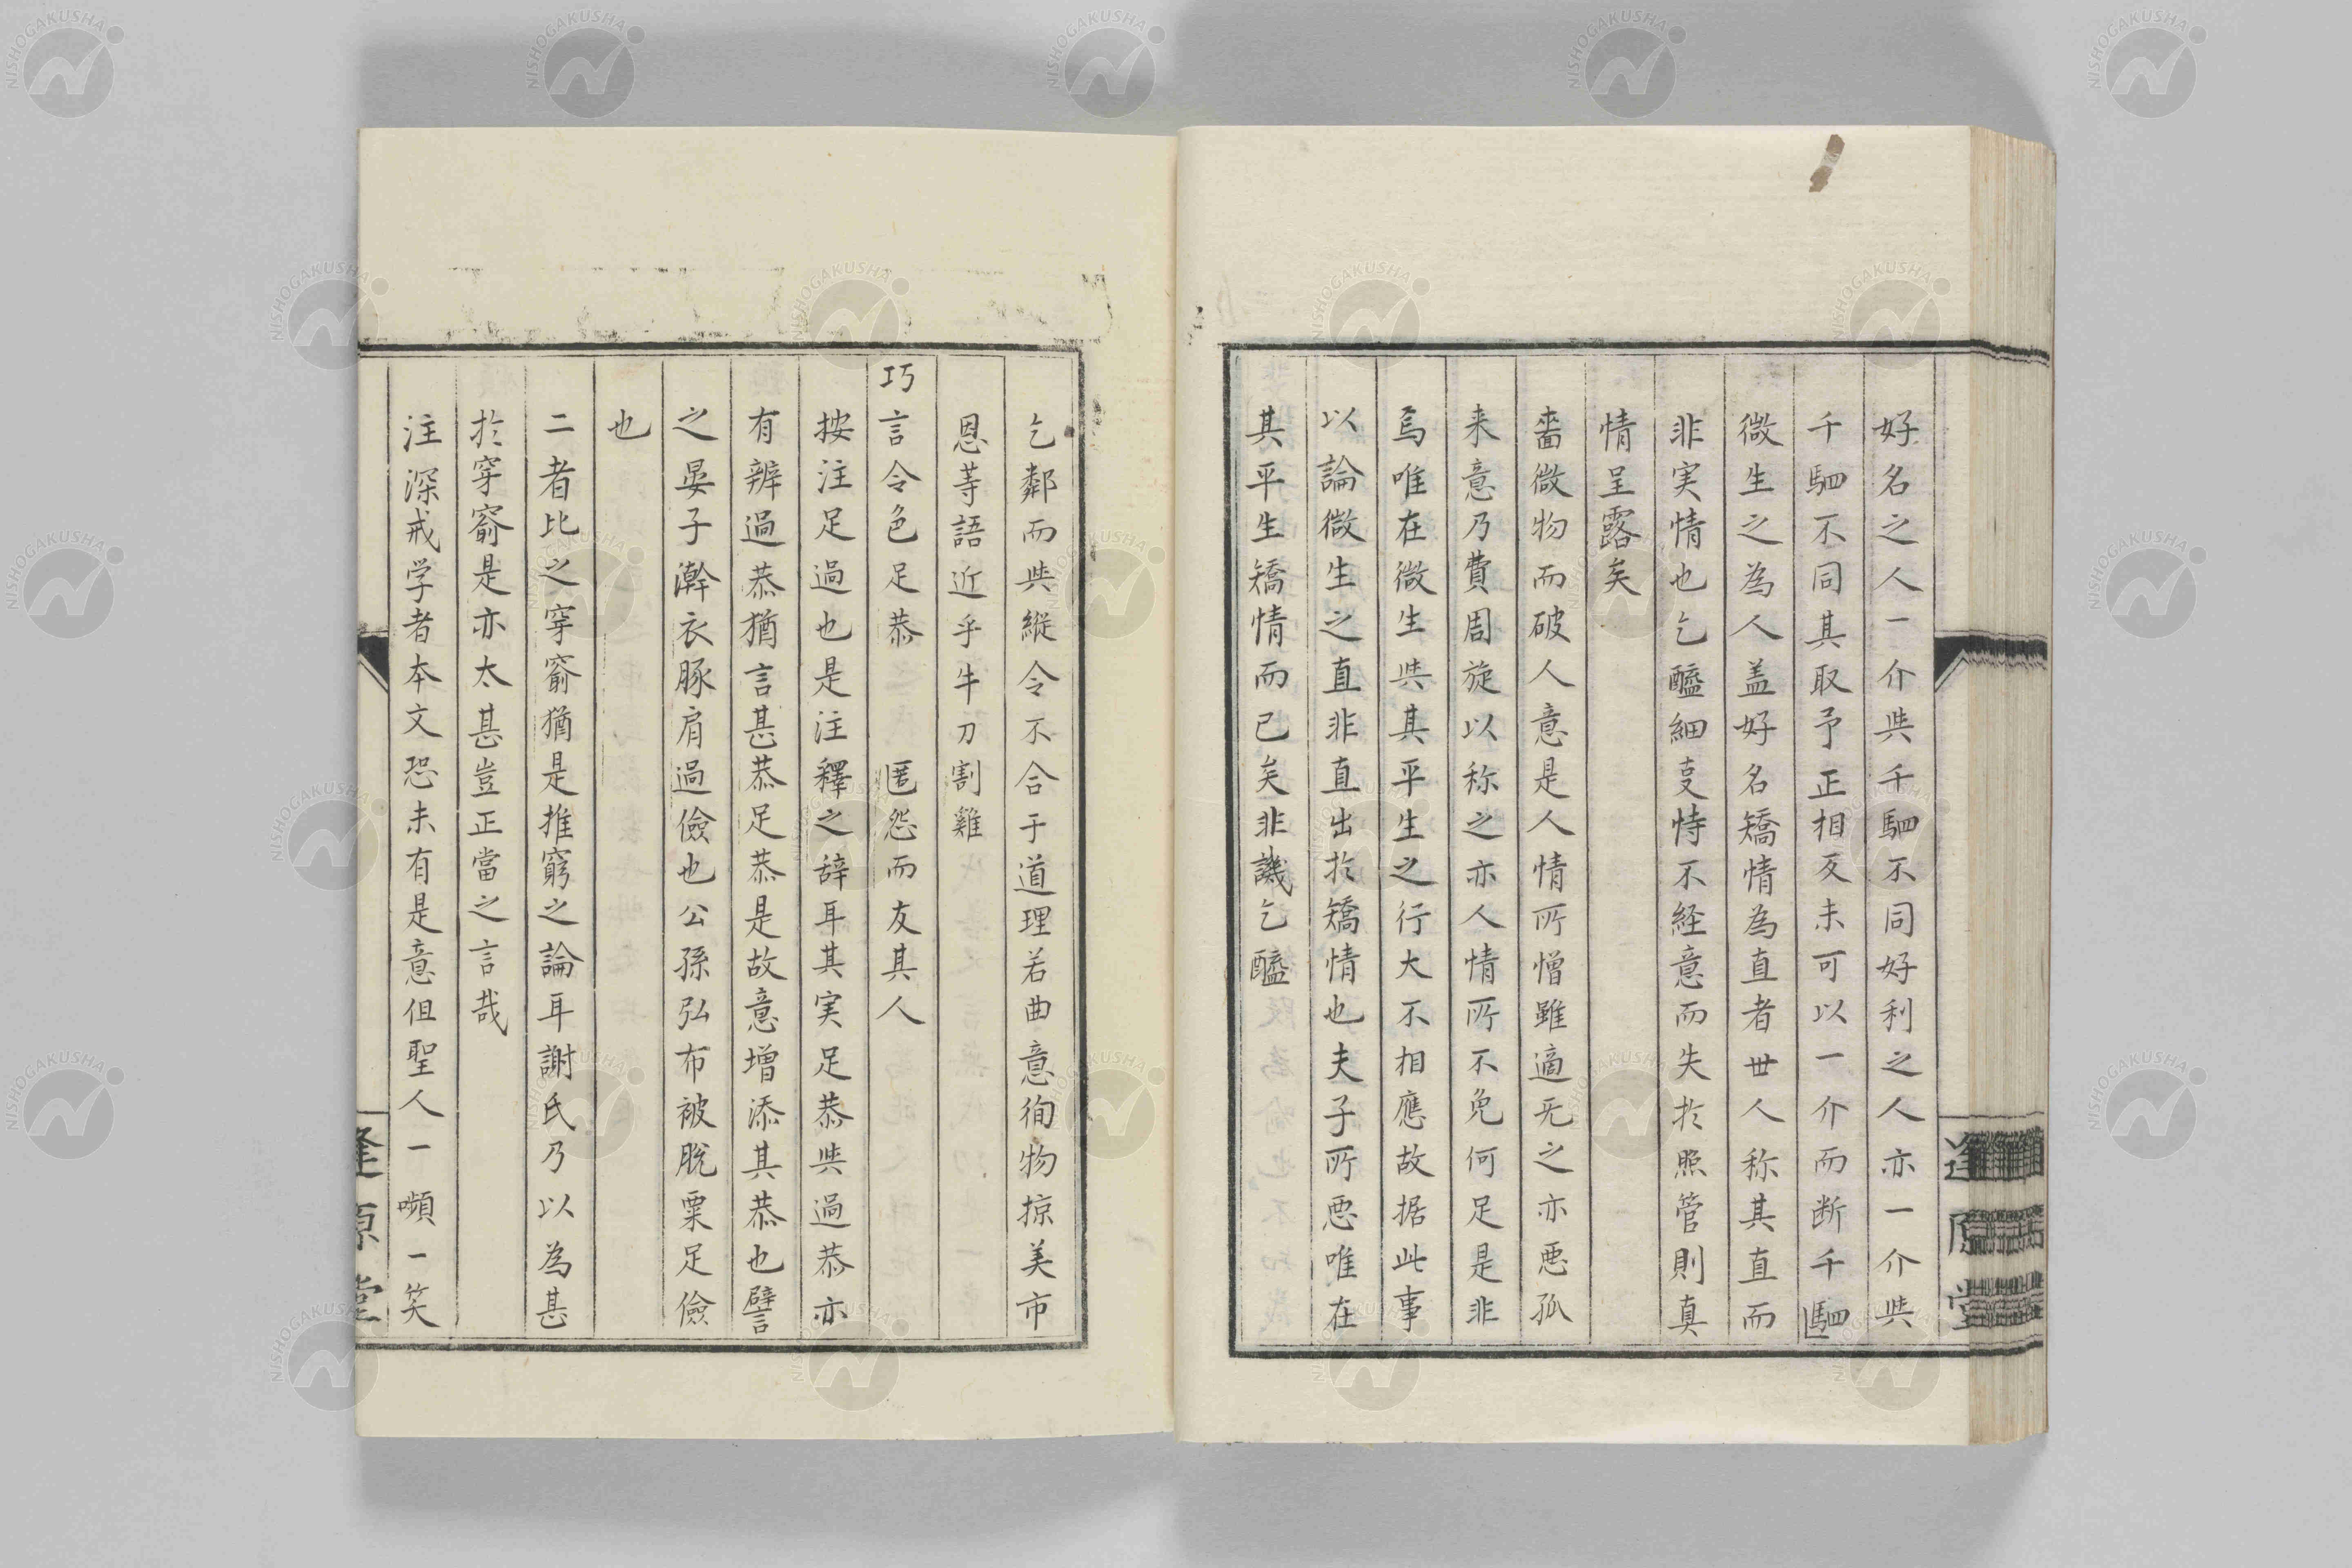 好名之人一介與千駟不同好利之人亦一介與
千駟不同其取予正相反未可以一介而断千駟
微生之為人盖好名矯情為直者世人称其直而
非実情也乞醯細支恃不経意而失於照管則真
情呈露矣
嗇微物而破人意是人情所憎雖適无之亦悪孤
来意乃費周旋以称之亦人情所不免何足是非
焉唯在微生與其平生之行大不相應故据此事
以論微生之直非直出於矯情也夫子所悪唯在
其平生矯情而已矣非譏乞醯
逢原堂
乞鄰而與縦令不合于道理若曲意徇物掠美市
恩䓁語近乎牛刀割雞
巧言令色足恭 匿怨而友其人
按注足過也是注釋之辞耳其実足恭與過恭亦
有辨過恭猶言甚恭足恭是故意增添其恭也譬
之晏子澣衣豚肩過儉也公孫弘布被脫粟足儉
也
二者比之穿窬猶是推窮之論耳謝氏乃以為甚
於穿窬是亦太甚豈正當之言哉
注深戒学者本文恐未有是意但聖人一嚬一笑
逢原堂
NISHOGAKUSHA